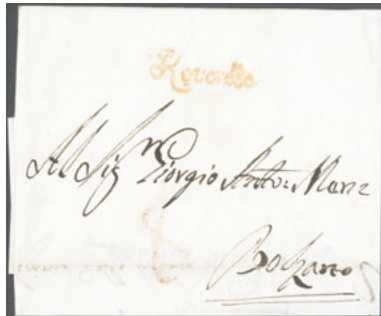 Roveredo
Al Sig.re Giorgio Anto: Menz
Bolzano